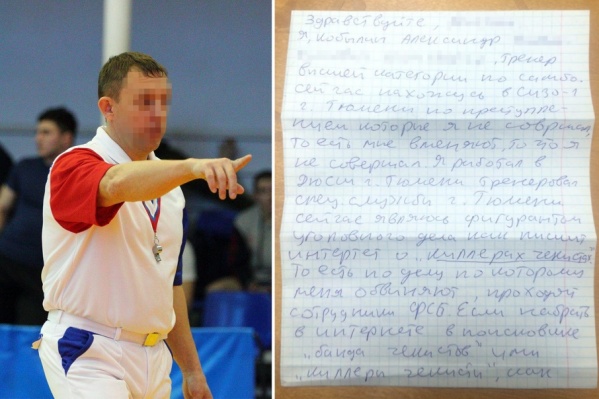 Здравствуйте,
Я, Кобылин Александр
, тренер
высшей категории по самбо.
Сейчас нахожусь в СИЗО-1
г. Тюмени по преступле-
ниям которые я не совершал,
То есть мне вменяют, то что я
не совершал. Я работал в
ДЮСШ г. Тюмени тренеровал
спец. службы г. Тюмени
сейчас являюсь фигурантом
уголовного дела как пишит
интернет о „киллерах чекистах"
То есть по делу по которому
меня обвиняют, проходят
сотрудники ФСБ. Если набрать
в интернете в поисковике
„банда чекистов" или
„киллеры чекисты", как